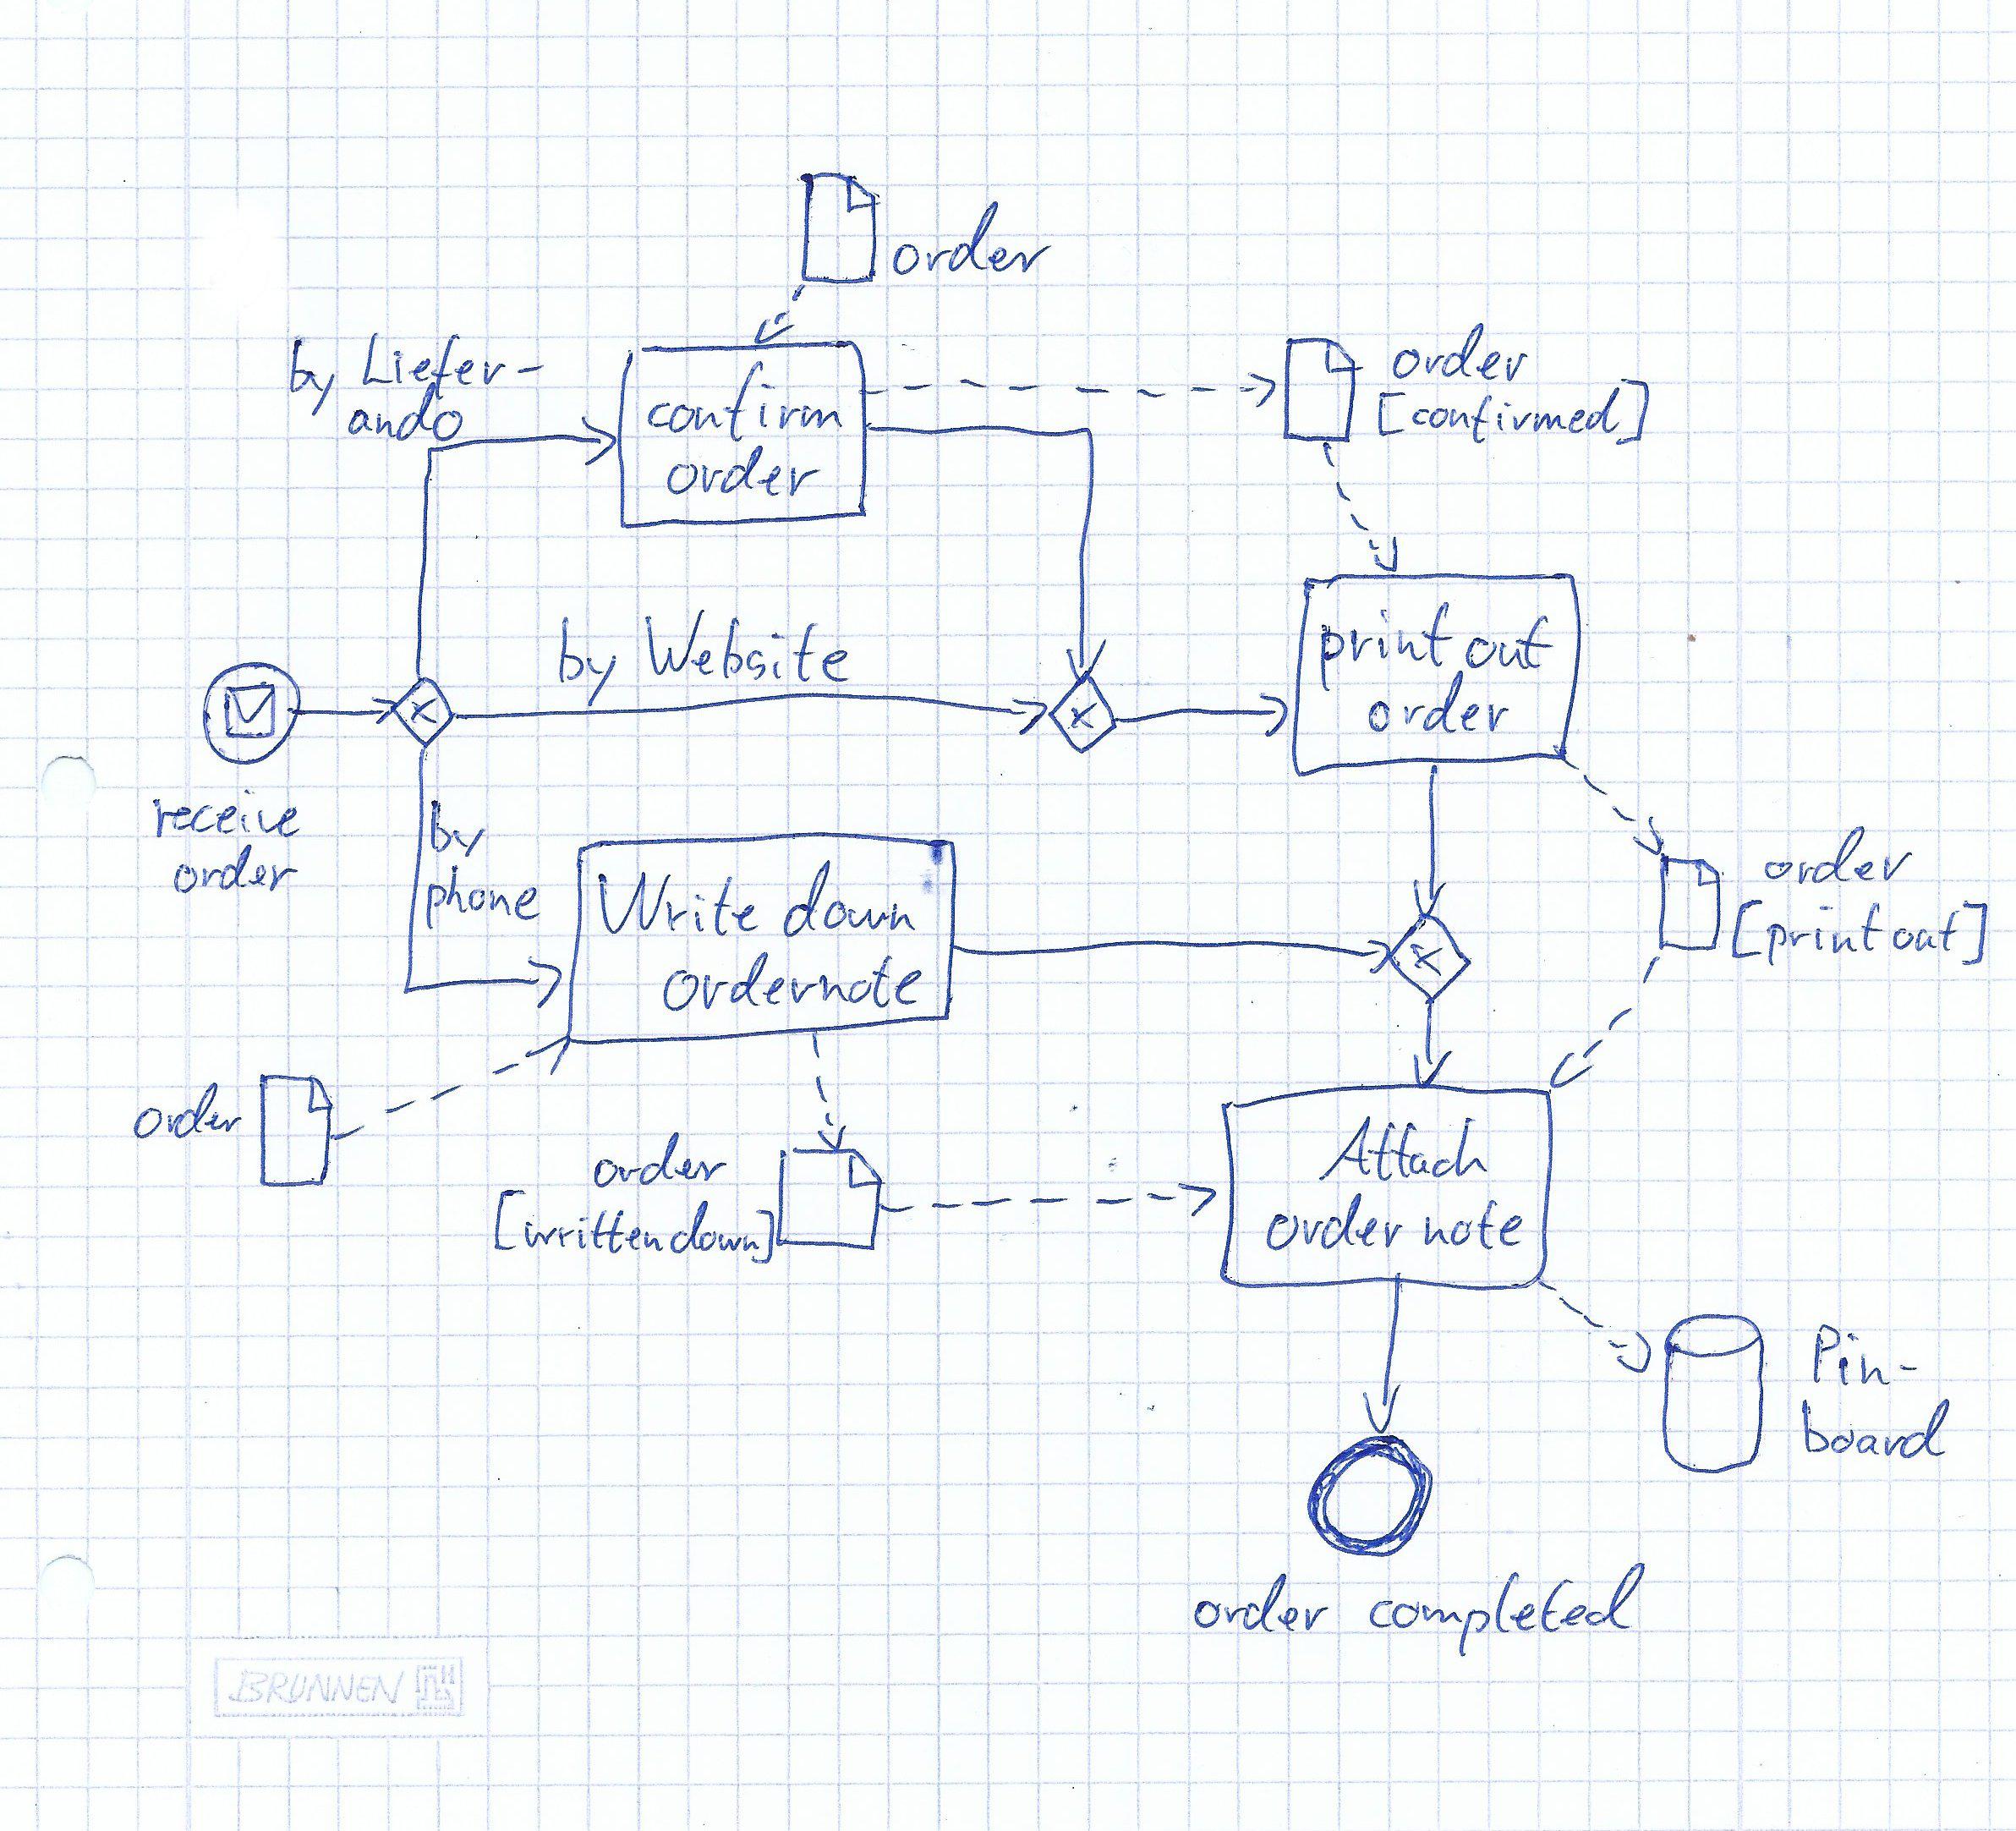 order
by Liefer-
ando
confirm
order
order
[confirmed]
by Website
print out
order
receive
order
by
phone
Write down
ordernote
order
[print out]
order
order
[written down]
Attach
order note
Pin-
board
order completed
BRUNNEN